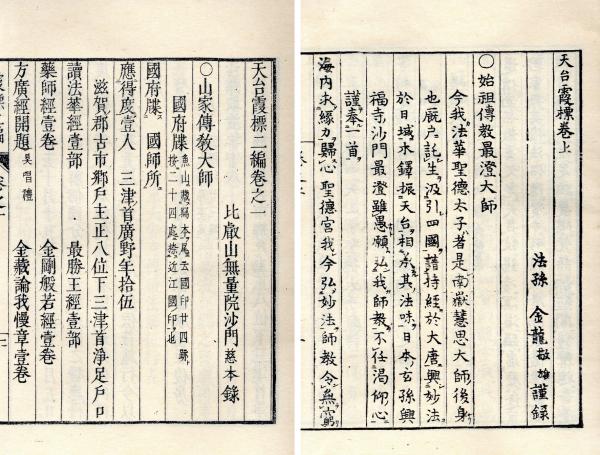 天台霞標卷上
法孫 金龍敬雄謹録
〇始祖傳教最澄大師
今我法華聖德太子者是南嶽慧思大師後身
也厩戸託生汲引四國請持經於大唐興妙法
於日域木鐸振天台相承其法味日本玄孫興
福寺沙門最澄雖愚願弘我師教不任渴仰心
謹奉一首
海内求縁力歸心聖德宮我今弘妙法師教令無窮
天台霞標二編卷之一
比叡山無量院沙門慈本録
〇山家傳教大師
國府牒 魚山藏寫本尾云國印廿四顆
按二十四處捺近江國印也
國府牒 國師所
應得度壹人 三津首廣野年拾伍
滋賀郡古市郷戸主正八位下三津首淨足戸口
讀法華經壹部 最勝王經壹部
藥師經壹卷 金剛般若經壹卷
方廣經開題 具唱禮 金藏論我慢章壹卷